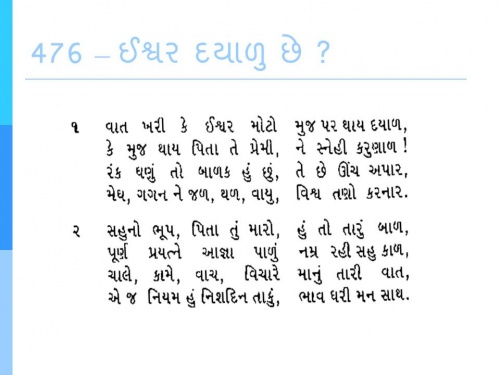 476 – ઈશ્વર દયાળુ છે ?
૧ વાત ખરી કે ઈશ્વર મોટો મુજ પર થાય દયાળ,
કે મુજ થાય પિતા તે પ્રેમી, ને સ્નેહી કરુણાળ !
રંક ઘણું તો બાળક હું છું, તે છે ઊંચ અપાર,
મેઘ, ગગન ને જળ, થળ, વાયુ, વિશ્વ તણો કરનાર.
૨ સહુનો ભૂપ, પિતા તું મારો, હું તો તારું બાળ,
પૂર્ણ પ્રયત્ને આજ્ઞા પાળું નમ્ર રહી સહુ કાળ,
ચાલે, કામે, વાચ, વિચારે માનું તારી વાત,
એ જ નિયમ હું નિશદિન તાકું, ભાવ ધરી મન સાથ.